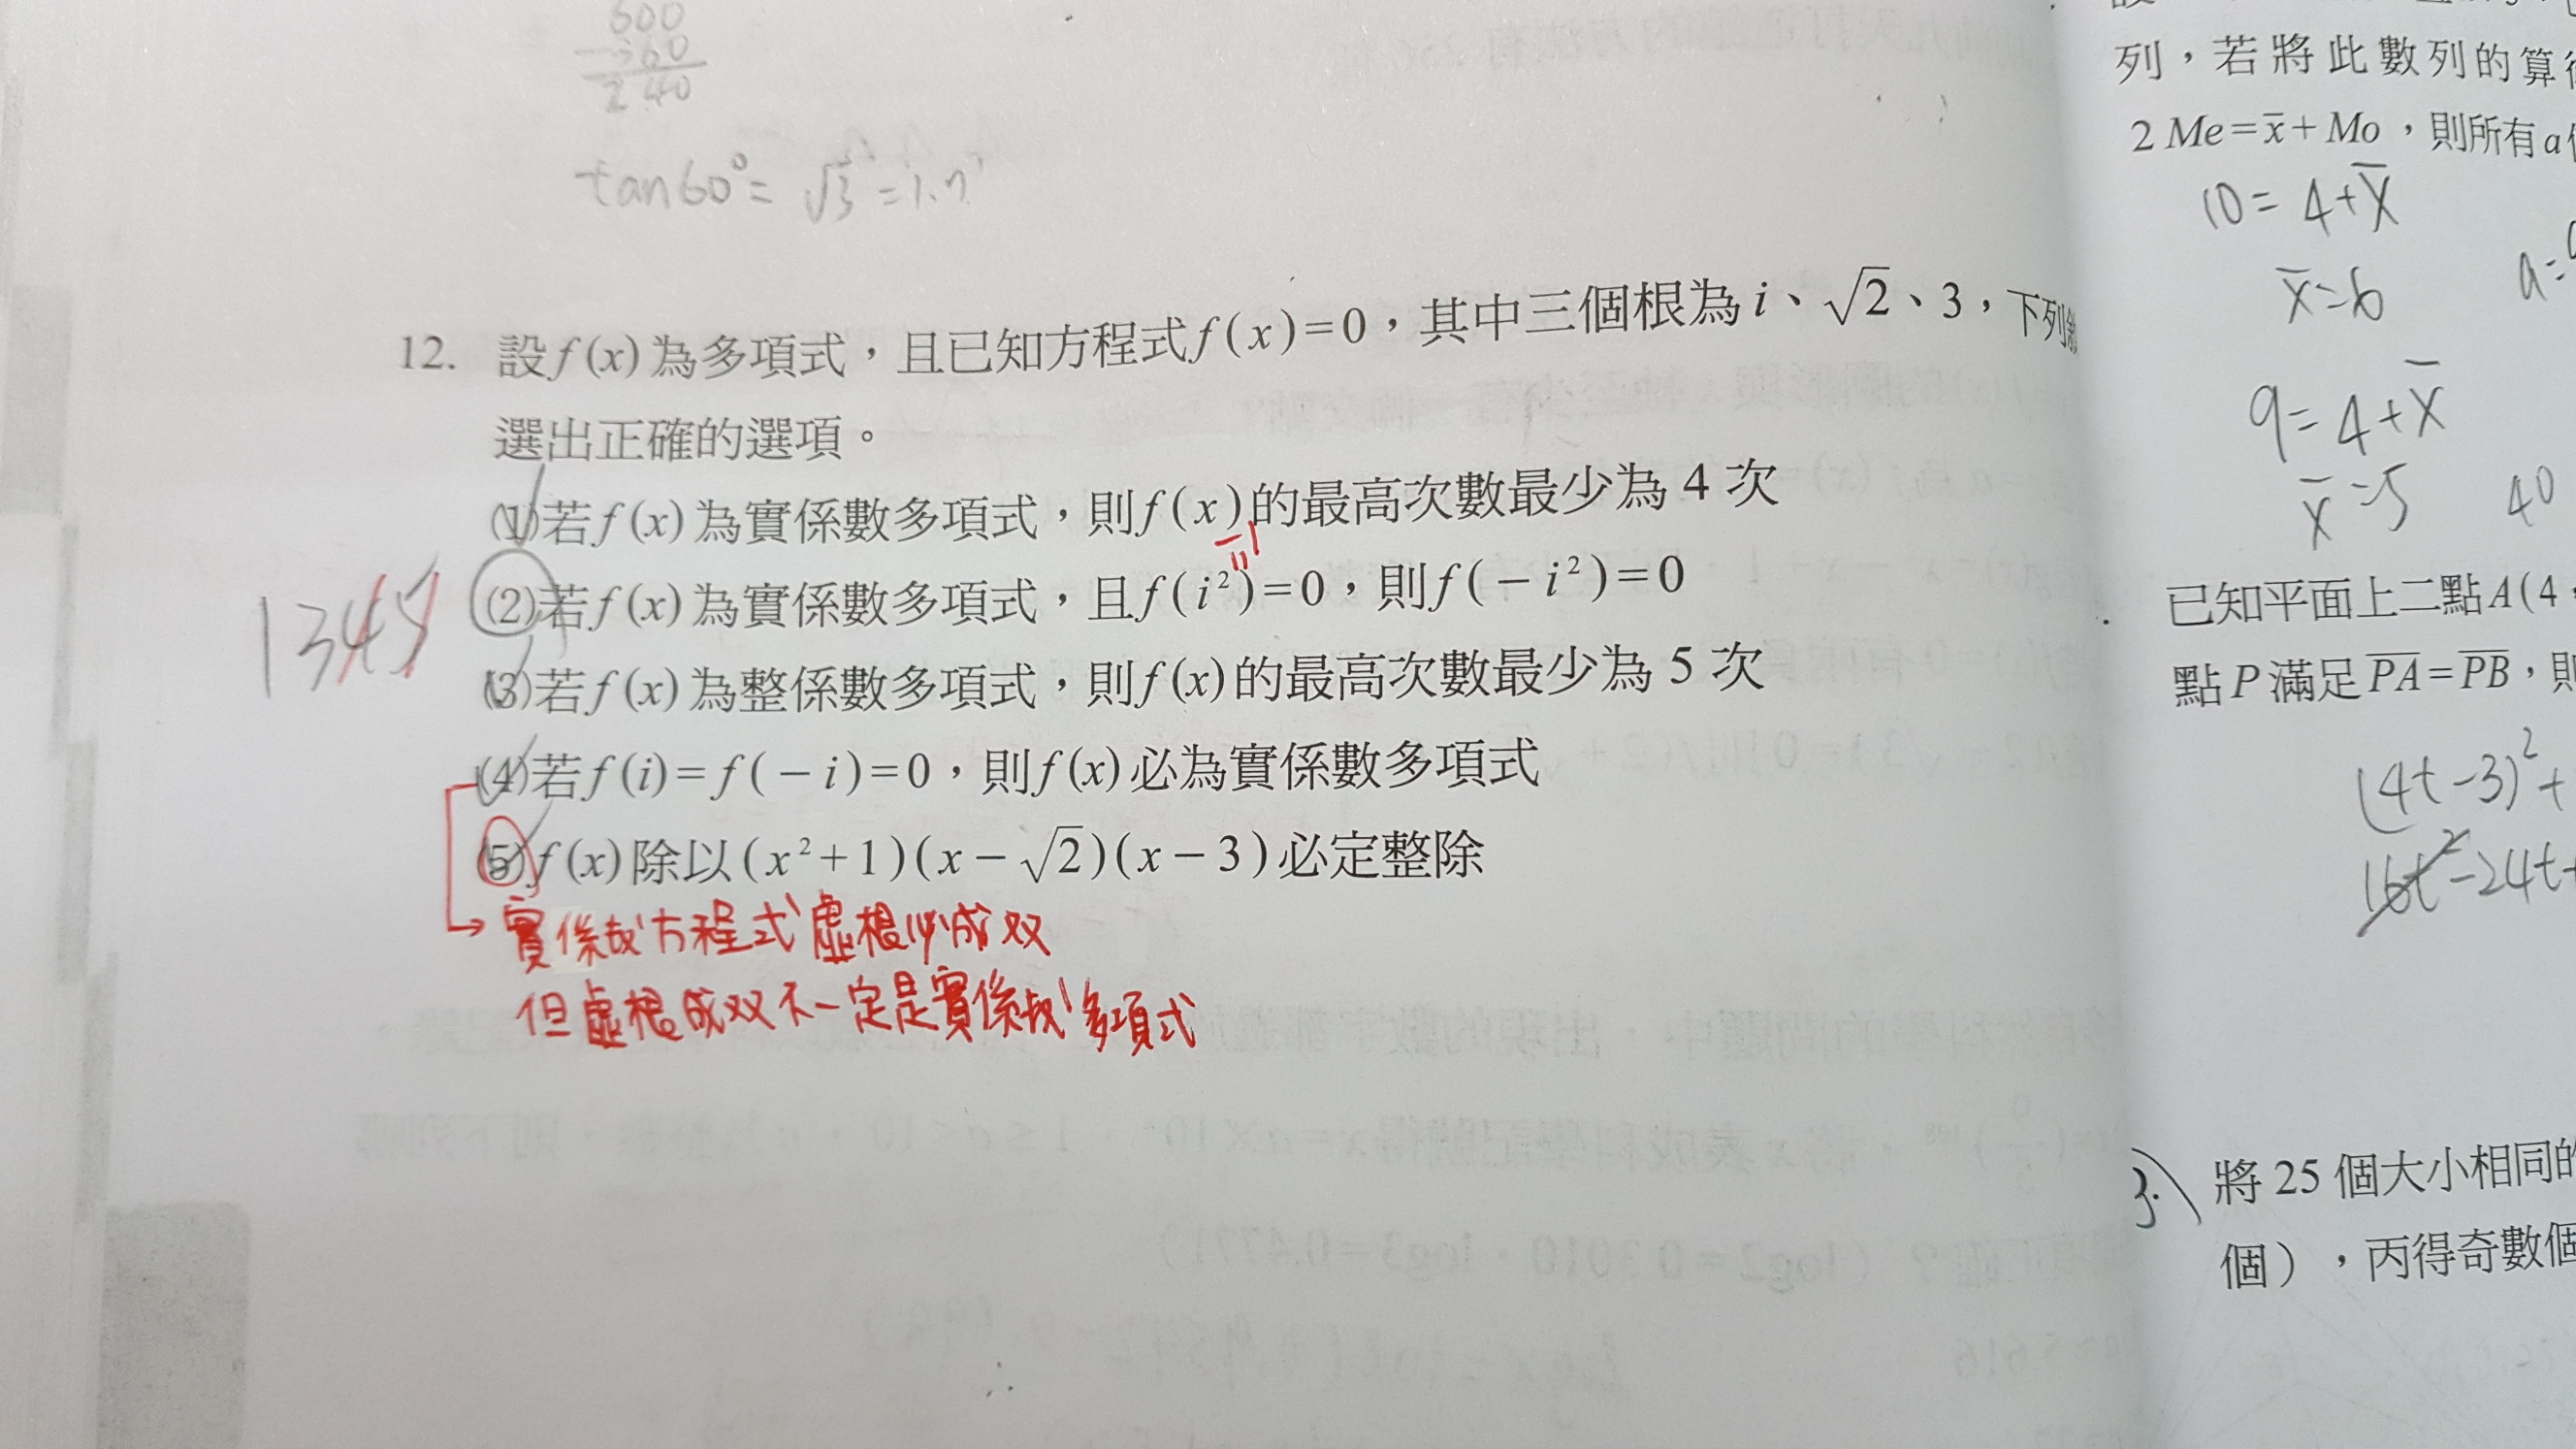 600
-360
240
tan60°= √3 =1.7
12. 設f(x)為多項式，且已知方程式f(x)=0，其中三個根為i、√2、3，下列
選出正確的選項。
(1)若f(x)為實係數多項式，則f(x)的最高次數最少為4次
-1
(2)若f(x)為實係數多項式，且f(i²)=0，則f(-i²)=0
(3)若f(x)為整係數多項式，則f(x)的最高次數最少為5次
1345
(4)若f(i)=f(-i)=0，則f(x)必為實係數多項式
(5)f(x)除以(x²+1)(x-√2)(x-3)必定整除
實係數方程式虛根必成双
但虛根成双不一定是實係數多項式
列，若將此數列的算
2Me=x̄+Mo，則所有a
10=4+x̄
x̄=6
a=
9=4+x̄
x̄=5
40
已知平面上二點A(4，
點P滿足PA=PB，則
(4t-3)²+
16t²-24t+
3.
將25個大小相同的
個），丙得奇數個